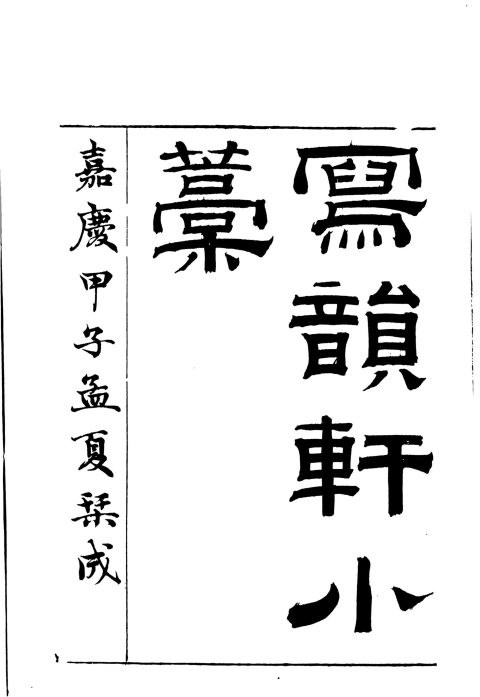 寫韻軒小
藳
嘉慶甲子孟夏栞成